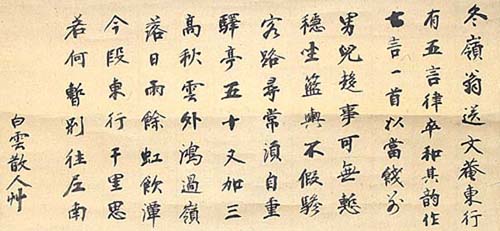 冬嶺翁送文菴東行
有五言律卒和其韵作
七言一首以當餞別
男兒趍事可無慙
穩坐籃輿不假驂
客路尋常須自重
驛亭五十又加三
高秋雲外鴻過嶺
落日雨餘虹飲潭
今段東行千里思
若何暫別南
白雲散人艸